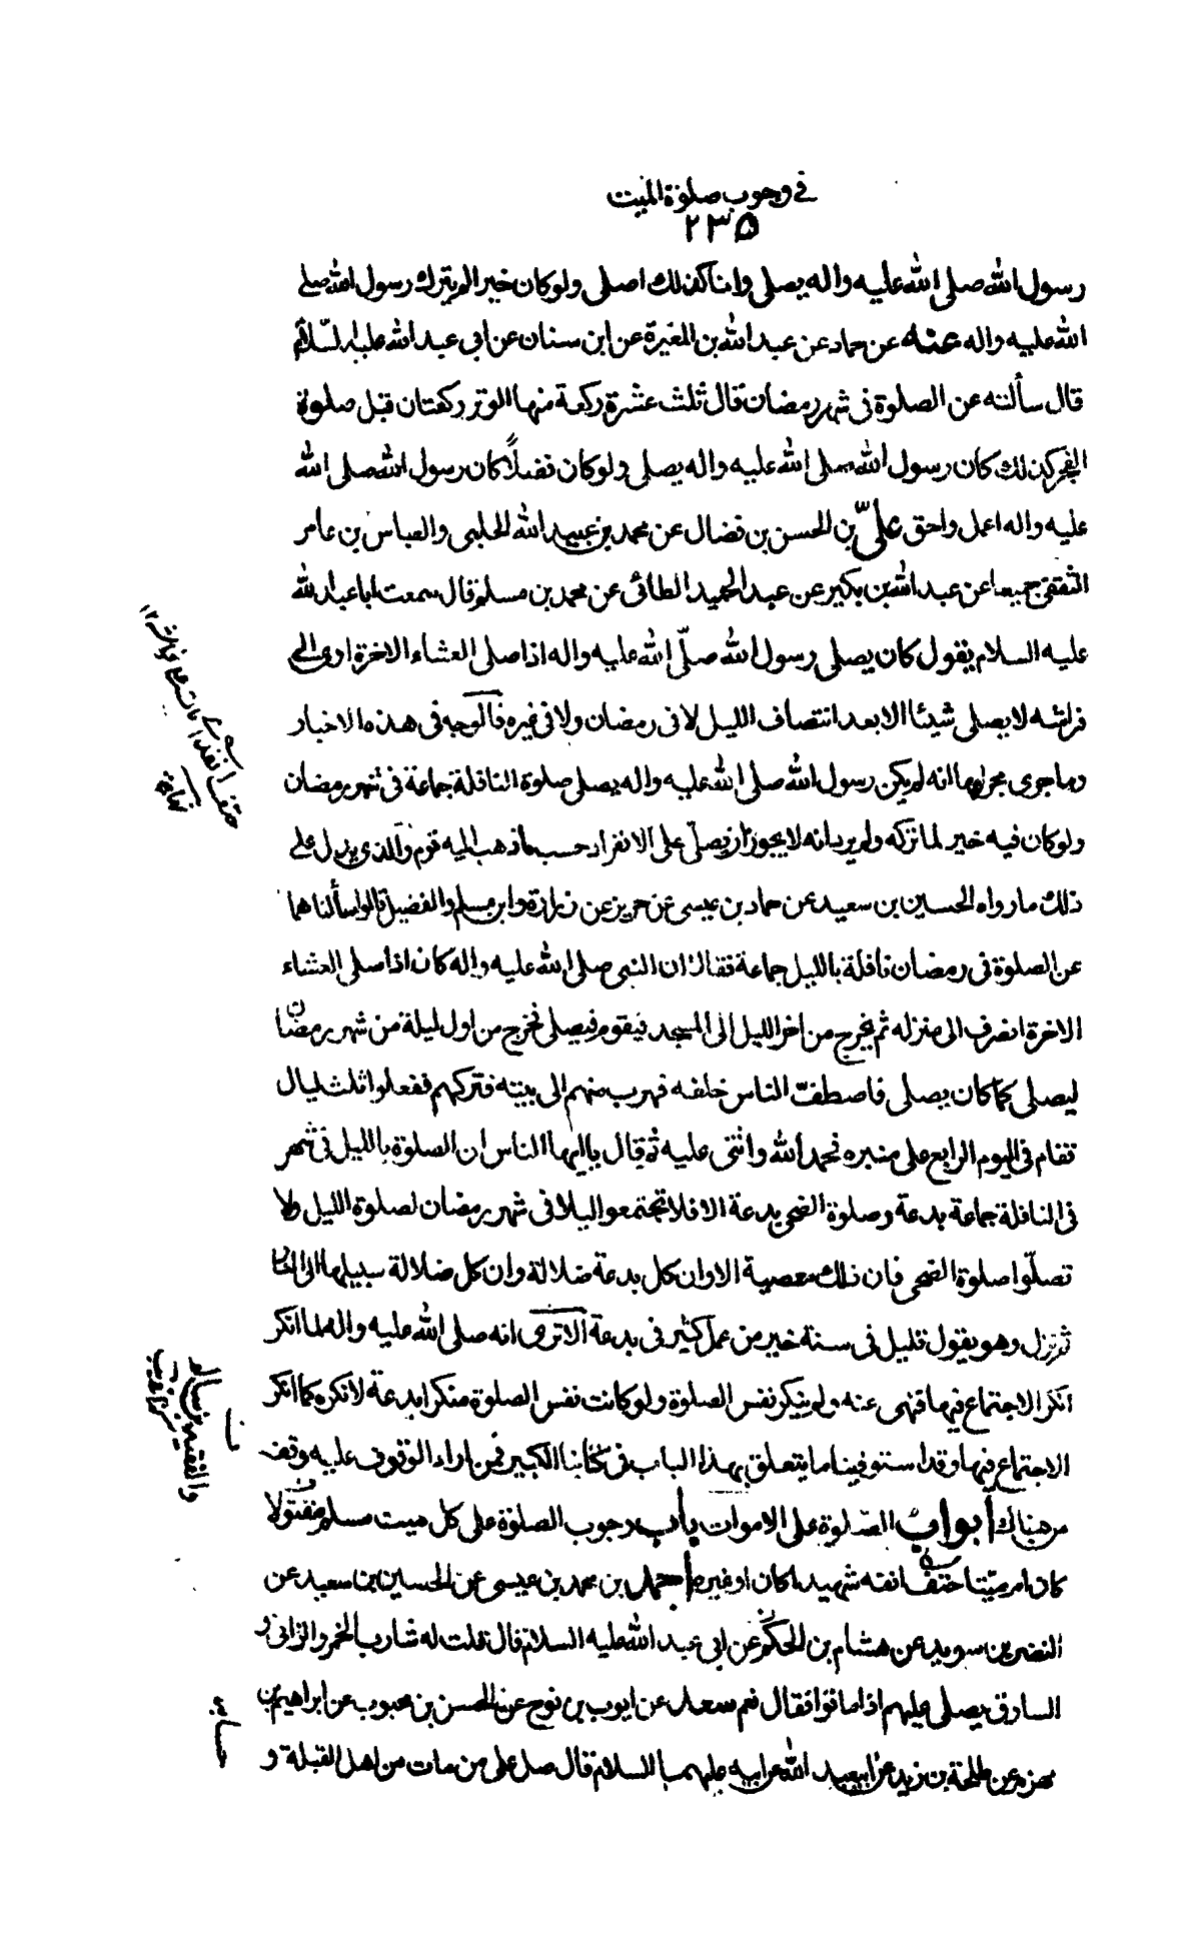 في وجوب صلوة الميت
٢٣٥
رسول الله صلى الله عليه واله يصلى وانا كذلك اصلى ولو كان خيرا لم يترك رسول الله صلى
الله عليه واله عنه عن حماد عن عبد الله بن المغيرة عن ابن سنان عن ابى عبد الله عليه السلام
قال سألته عن الصلوة فى شهر رمضان قال ثلث عشرة ركعة منها الوتر وركعتان قبل صلوة
الفجر كذلك كان رسول الله صلى الله عليه واله يصلى ولو كان فضلاً كان رسول الله صلى الله
عليه واله اعمل واحق علىّ بن الحسن بن فضال عن محمد بن عبيد الله الحلبى والعباس بن عامر
الثقفى جميعا عن عبد الله بن بكير عن عبد الحميد الطائى عن محمد بن مسلم قال سمعت ابا عبد الله
عليه السلام يقول كان يصلى رسول الله صلّى الله عليه واله اذا صلى العشاء الاخرة اوى الى
فراشه لا يصلى شيئا الا بعد انتصاف الليل لا فى رمضان ولا فى غيره فالوجه فى هذه الاخبار
وما جرى مجراها انه لم يكن رسول الله صلى الله عليه واله يصلى صلوة النافلة جماعة فى شهر رمضان
ولو كان فيه خير لما تركه ولم يرد انه لا يجوز ان يصلى على الانفراد حسب ما ذهب اليه قوم والذى يدل على
ذلك ما رواه الحسين بن سعيد عن حماد بن عيسى عن حريز عن زرارة وابن مسلم والفضيل قالوا سألناهما
عن الصلوة فى رمضان نافلة بالليل جماعة فقالا ان النبى صلى الله عليه واله كان اذا صلى العشاء
الاخرة انصرف الى منزله ثم يخرج من اخر الليل الى المسجد فيقوم فيصلى فخرج من اول ليلة من شهر رمضان
ليصلى كما كان يصلى فاصطفّ الناس خلفه فهرب منهم الى بيته فتركهم ففعلوا ثلث ليال
فقام فى اليوم الرابع على منبره فحمد الله واثنى عليه ثم قال يا ايها الناس ان الصلوة بالليل فى شهر
فى النافلة جماعة بدعة وصلوة الضحى بدعة الا فلا تجتمعوا ليلا فى شهر رمضان لصلوة الليل ولا
تصلّوا صلوة الضحى فان ذلك معصية الا وان كل بدعة ضلالة وان كل ضلالة سبيلها الى النار
ثم نزل وهو يقول قليل فى سنة خير من عمل كثير فى بدعة الا ترى انه صلى الله عليه واله لما انكر
انكر الاجتماع فيها فنهى عنه ولم ينكر نفس الصلوة ولو كانت نفس الصلوة منكرا بدعة لانكره كما انكر
الاجتماع فيها وقد استوفينا ما يتعلق بهذا الباب فى كتابنا الكبير فمن اراد الوقوف عليه وقف
من هناك أبواب الصّلوة على الاموات باب وجوب الصلوة على كل ميت مسلم مقتولا
كان ام ميّتا حتف انفه شهيدا كان او غيره أحمد بن محمد بن عيسى عن الحسين بن سعيد عن
النضر بن سويد عن هشام بن الحكم عن ابى عبد الله عليه السلام قال قلت له شارب الخمر والزانى و
السارق يصلى عليهم اذا ماتوا فقال نعم سعد عن ايوب بن نوح عن الحسن بن محبوب عن ابراهيم بن
مهزم عن طلحة بن زيد عن ابى عبد الله عن ابيه عليهما السلام قال صل على من مات من اهل القبلة و